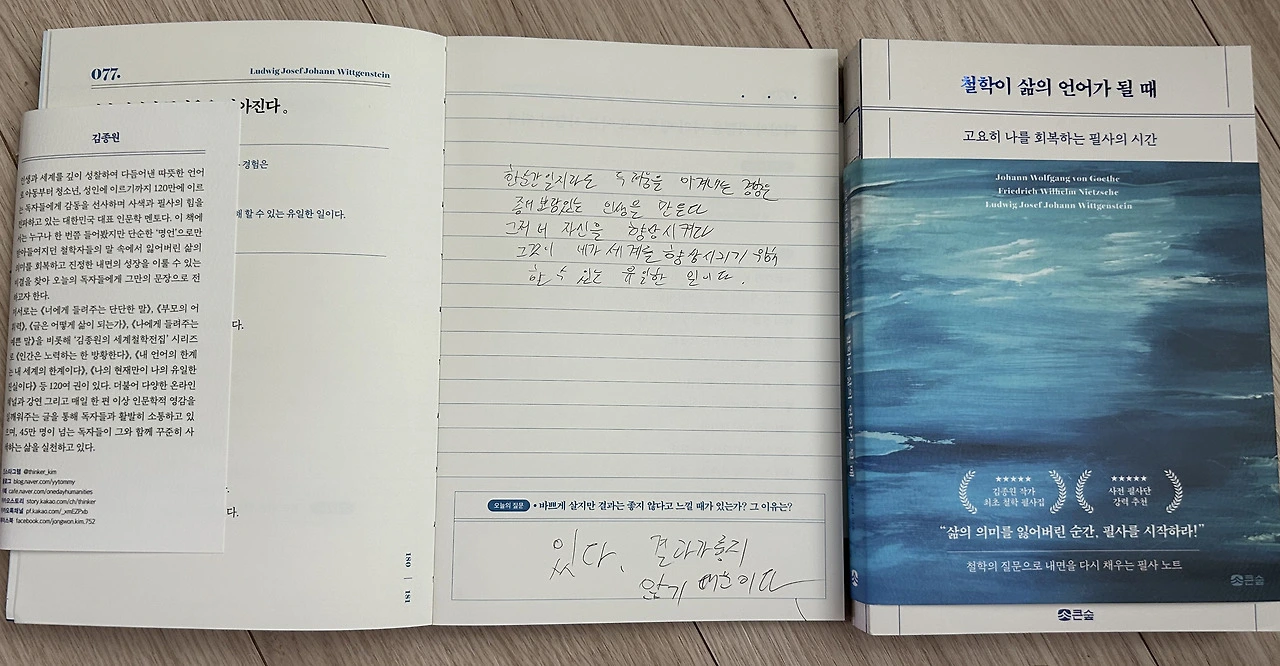 077.
Ludwig Josef Johann Wittgenstein
아진다.
경험은
해 할 수 있는 유일한 일이다.
다.
다.
180 | 181
김종원
인생과 세계를 깊이 성찰하여 다듬어낸 따뜻한 언어
로 아동부터 청소년, 성인에 이르기까지 120만에 이르
는 독자들에게 감동을 선사하며 사색과 필사의 힘을
전파하고 있는 대한민국 대표 인문학 멘토다. 이 책에
서는 누구나 한 번쯤 들어봤지만 단순한 ‘명언’으로만
받아들여지던 철학자들의 말 속에서 잃어버린 삶의
의미를 회복하고 진정한 내면의 성장을 이룰 수 있는
비결을 찾아 오늘의 독자들에게 그만의 문장으로 전
하고자 한다.
저서로는 《너에게 들려주는 단단한 말》, 《부모의 어
휘력》, 《글은 어떻게 삶이 되는가》, 《나에게 들려주는
예쁜 말》을 비롯해 ‘김종원의 세계철학전집’ 시리즈
로 《인간은 노력하는 한 방황한다》, 《내 언어의 한계
는 내 세계의 한계이다》, 《나의 현재만이 나의 유일한
진실이다》 등 120여 권이 있다. 더불어 다양한 온라인
채널과 강연 그리고 매일 한 편 이상 인문학적 영감을
일깨워주는 글을 통해 독자들과 활발히 소통하고 있
으며, 45만 명이 넘는 독자들이 그와 함께 꾸준히 사
색하는 삶을 실천하고 있다.
인스타그램 @thinker_kim
블로그 blog.naver.com/yytommy
카페 cafe.naver.com/onedayhumanities
카카오스토리 story.kakao.com/ch/thinker
카카오톡채널 pf.kakao.com/_xmEZPxb
페이스북 facebook.com/jongwon.kim.752
한순간일지라도 두려움을 이겨내는 경험은
좀더 보람있는 인생을 만든다
그저 네 자신을 향상시켜라
그것이 네가 세계를 향상시키기 위해
할 수 있는 유일한 일이다.
오늘의 질문 • 바쁘게 살지만 결과는 좋지 않다고 느낄 때가 있는가? 그 이유는?
있다. 결과가 좋지
않기 때문이다
철학이 삶의 언어가 될 때
고요히 나를 회복하는 필사의 시간
Johann Wolfgang von Goethe
Friedrich Wilhelm Nietzsche
Ludwig Josef Johann Wittgenstein
김종원 작가
최초 철학 필사집
사전 필사단
강력 추천
“삶의 의미를 잃어버린 순간, 필사를 시작하라!”
철학의 질문으로 내면을 다시 채우는 필사 노트
큰숲
큰숲